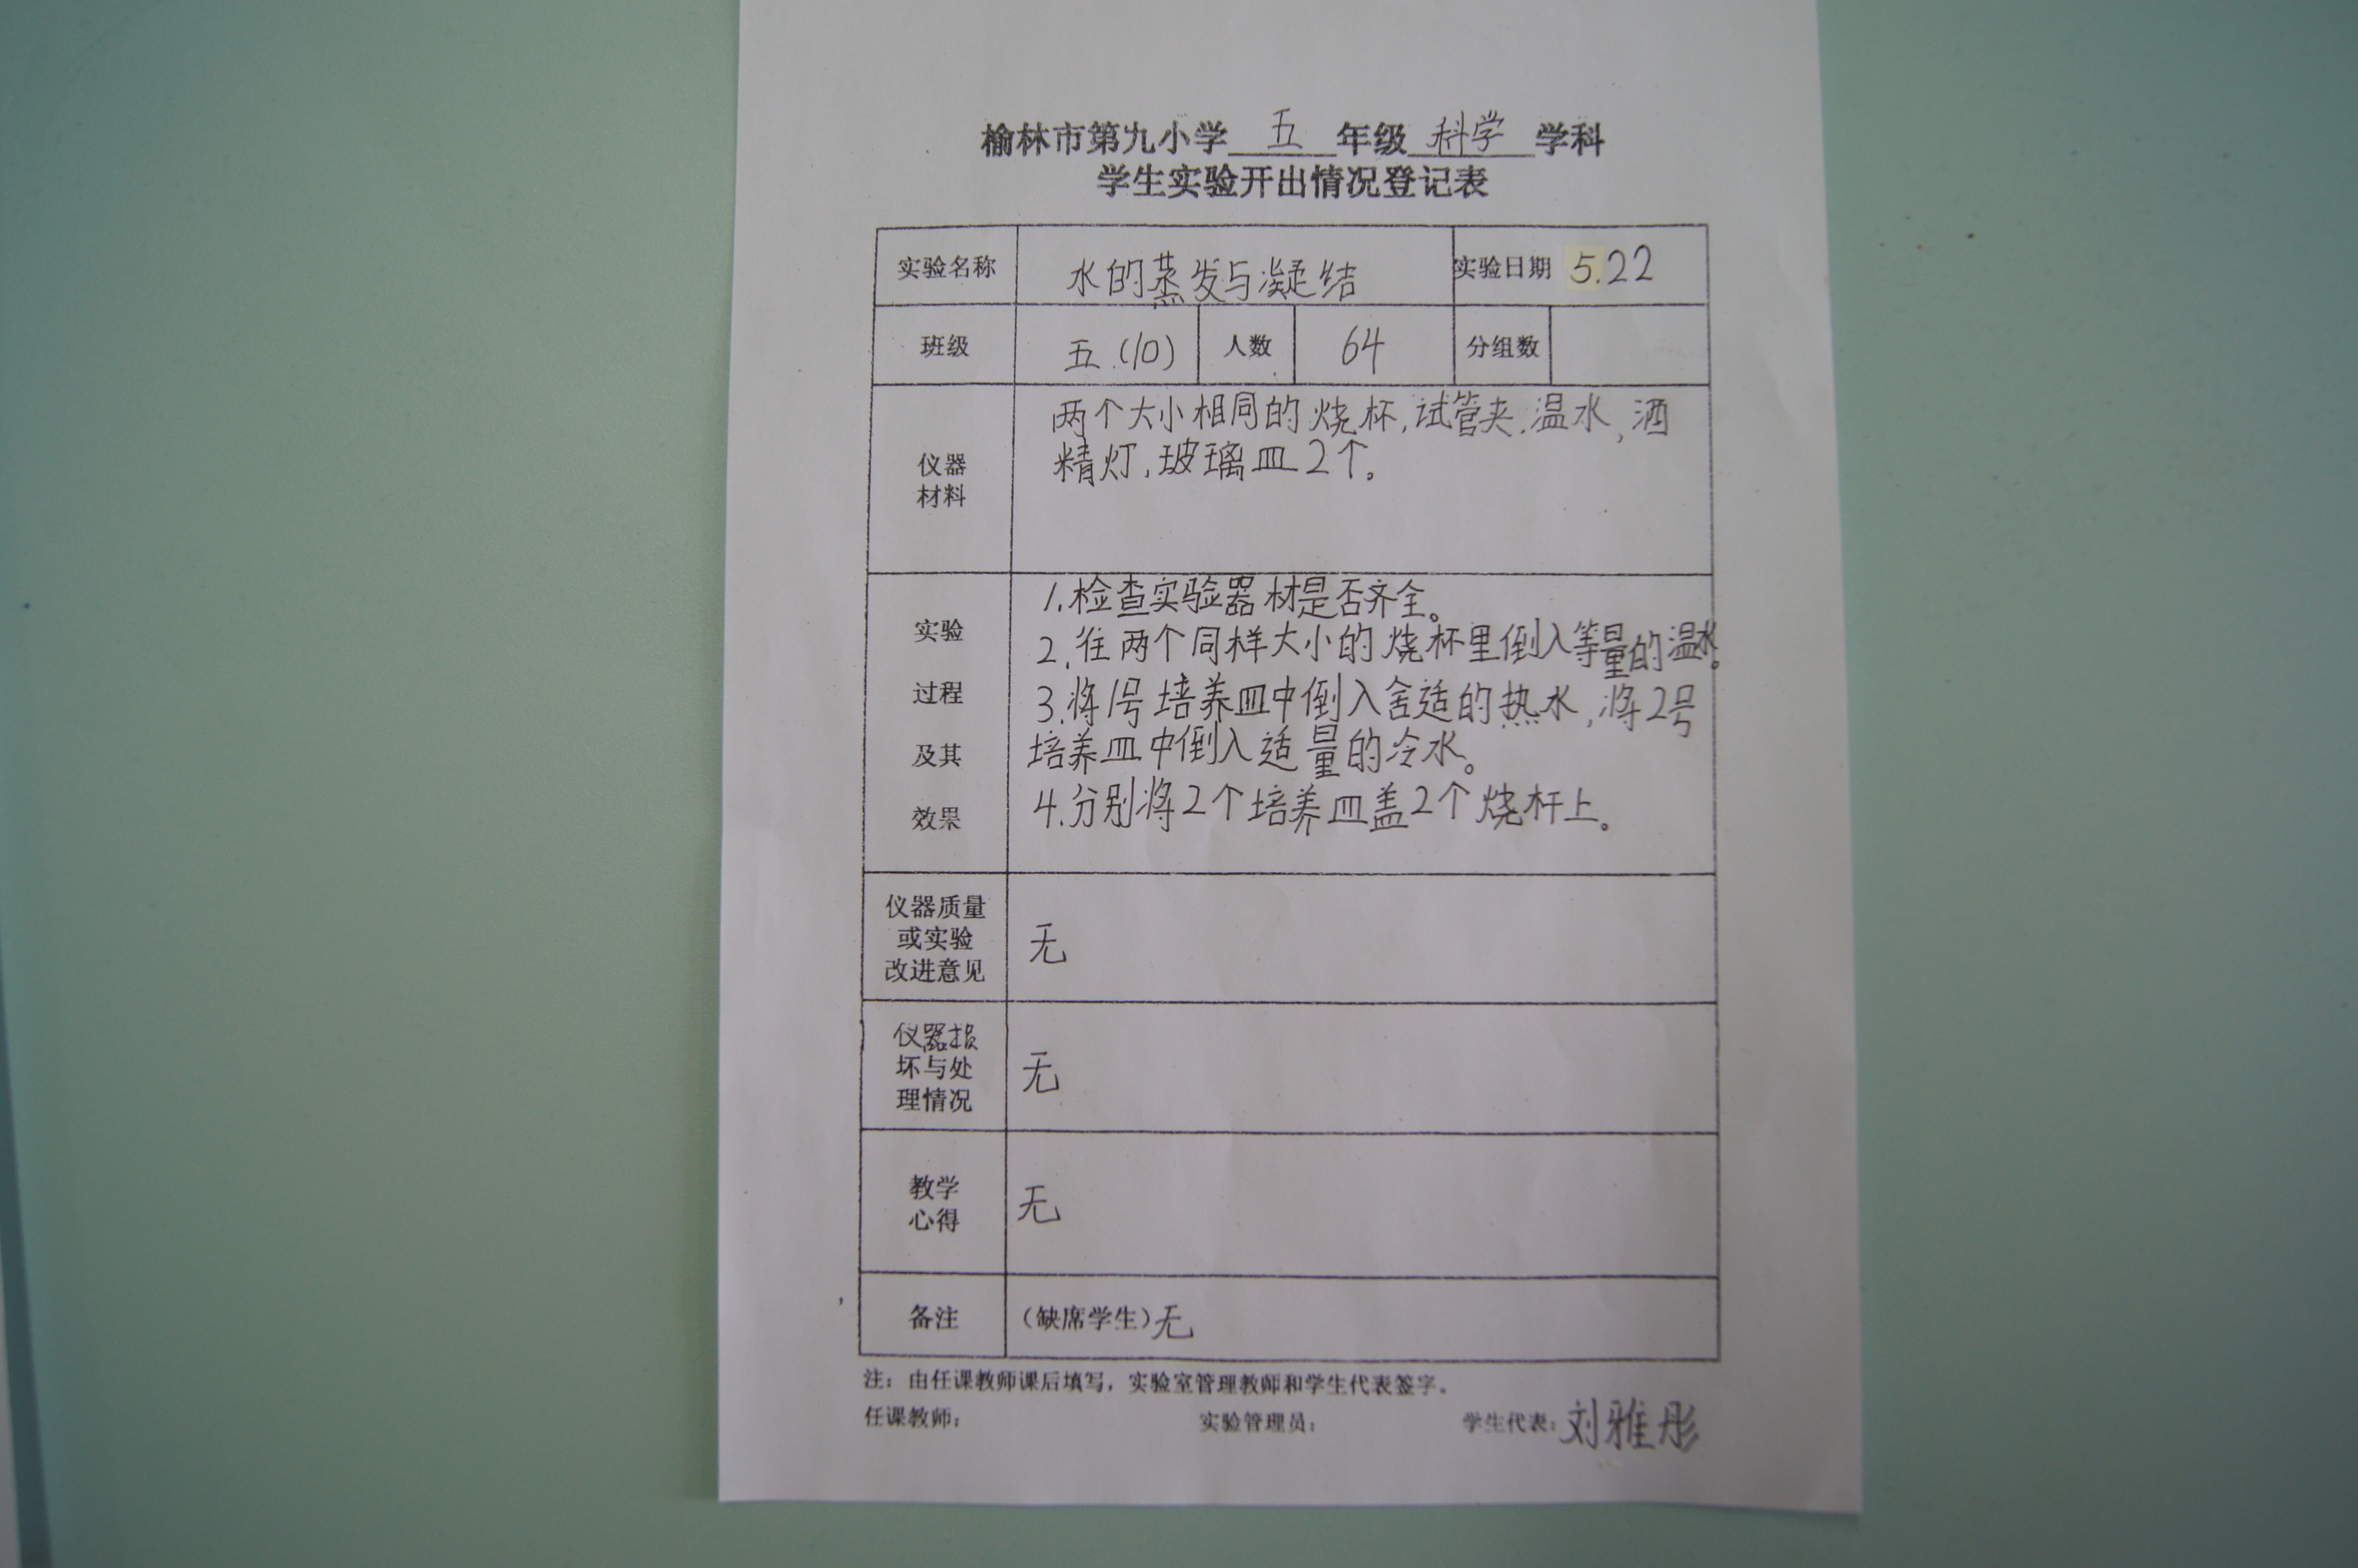 榆林市第九小学 五 年级 科学 学科
学生实验开出情况登记表
实验名称 水的蒸发与凝结 实验日期 5.22
班级 五.(10) 人数 64 分组数
仪器
材料
两个大小相同的烧杯,试管夹.温水,酒
精灯,玻璃皿2个。
实验
过程
及其
效果
1.检查实验器材是否齐全。
2.往两个同样大小的烧杯里倒入等量的温水。
3.将1号培养皿中倒入舍适的热水,将2号
培养皿中倒入适量的冷水。
4.分别将2个培养皿盖2个烧杆上。
仪器质量
或实验
改进意见
无
仪器损
坏与处
理情况
无
教学
心得
无
备注 (缺席学生)无
注：由任课教师课后填写，实验室管理教师和学生代表签字。
任课教师： 实验管理员： 学生代表：刘雅彤